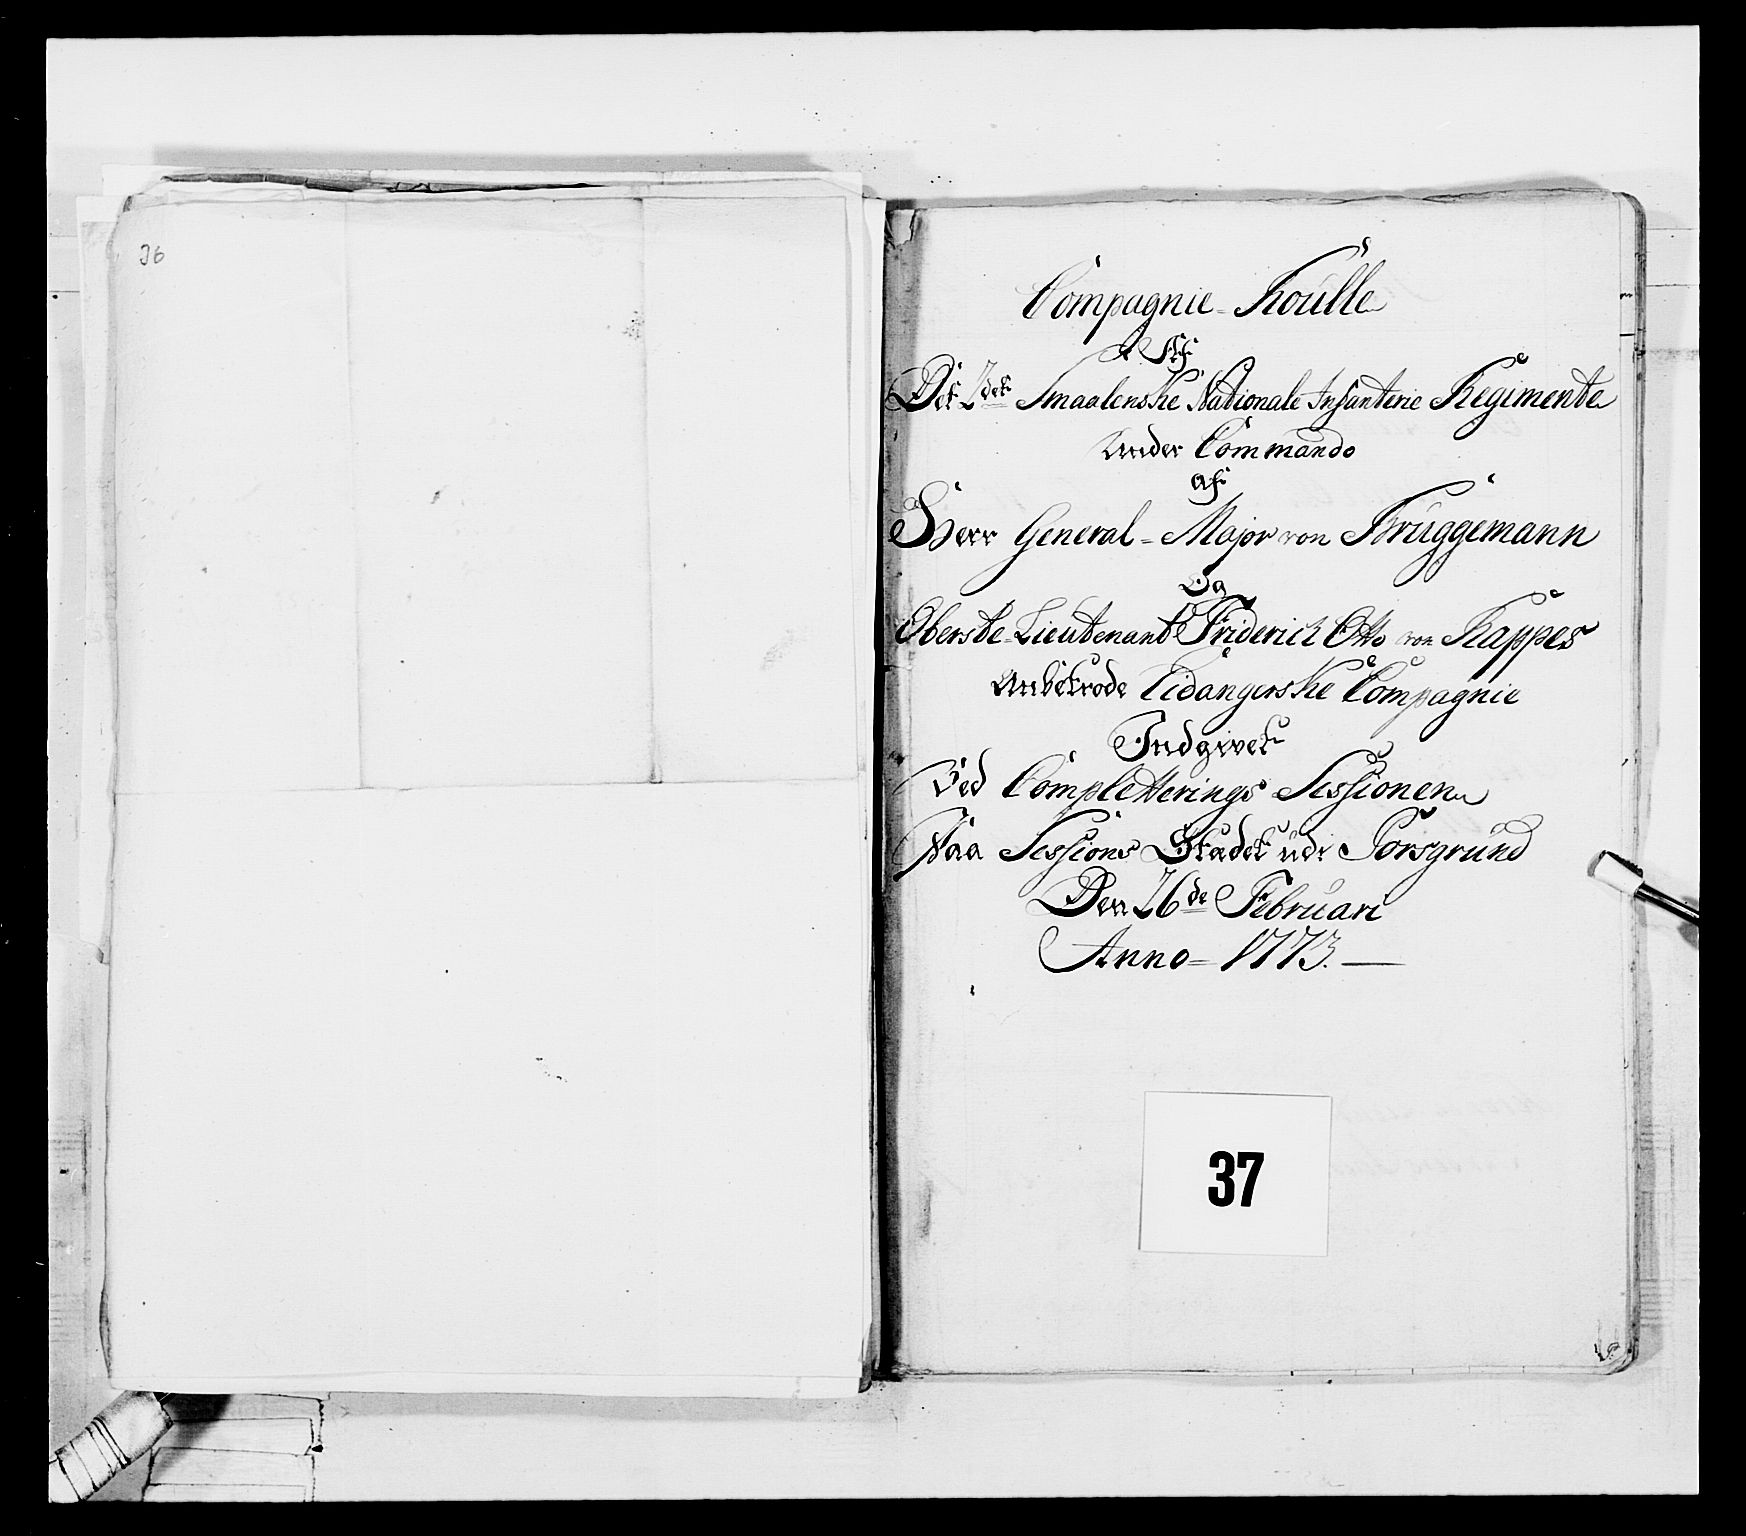 36
Compagnie-Roulle
Af
Det 2det Smaalenske Nationale Infanterie Regimente
Under Commando
af
Herr General-Major von Brüggemann
Og
Oberste-Lieutenant Friderich Otto von Kappes
Anbetrode Eidangerske Compagnie
Indgivet
Ved Completterings Sessionen
Paa Sessions Stædet udi Porsgrund
Den 26de Februari
Anno= 1773.
37